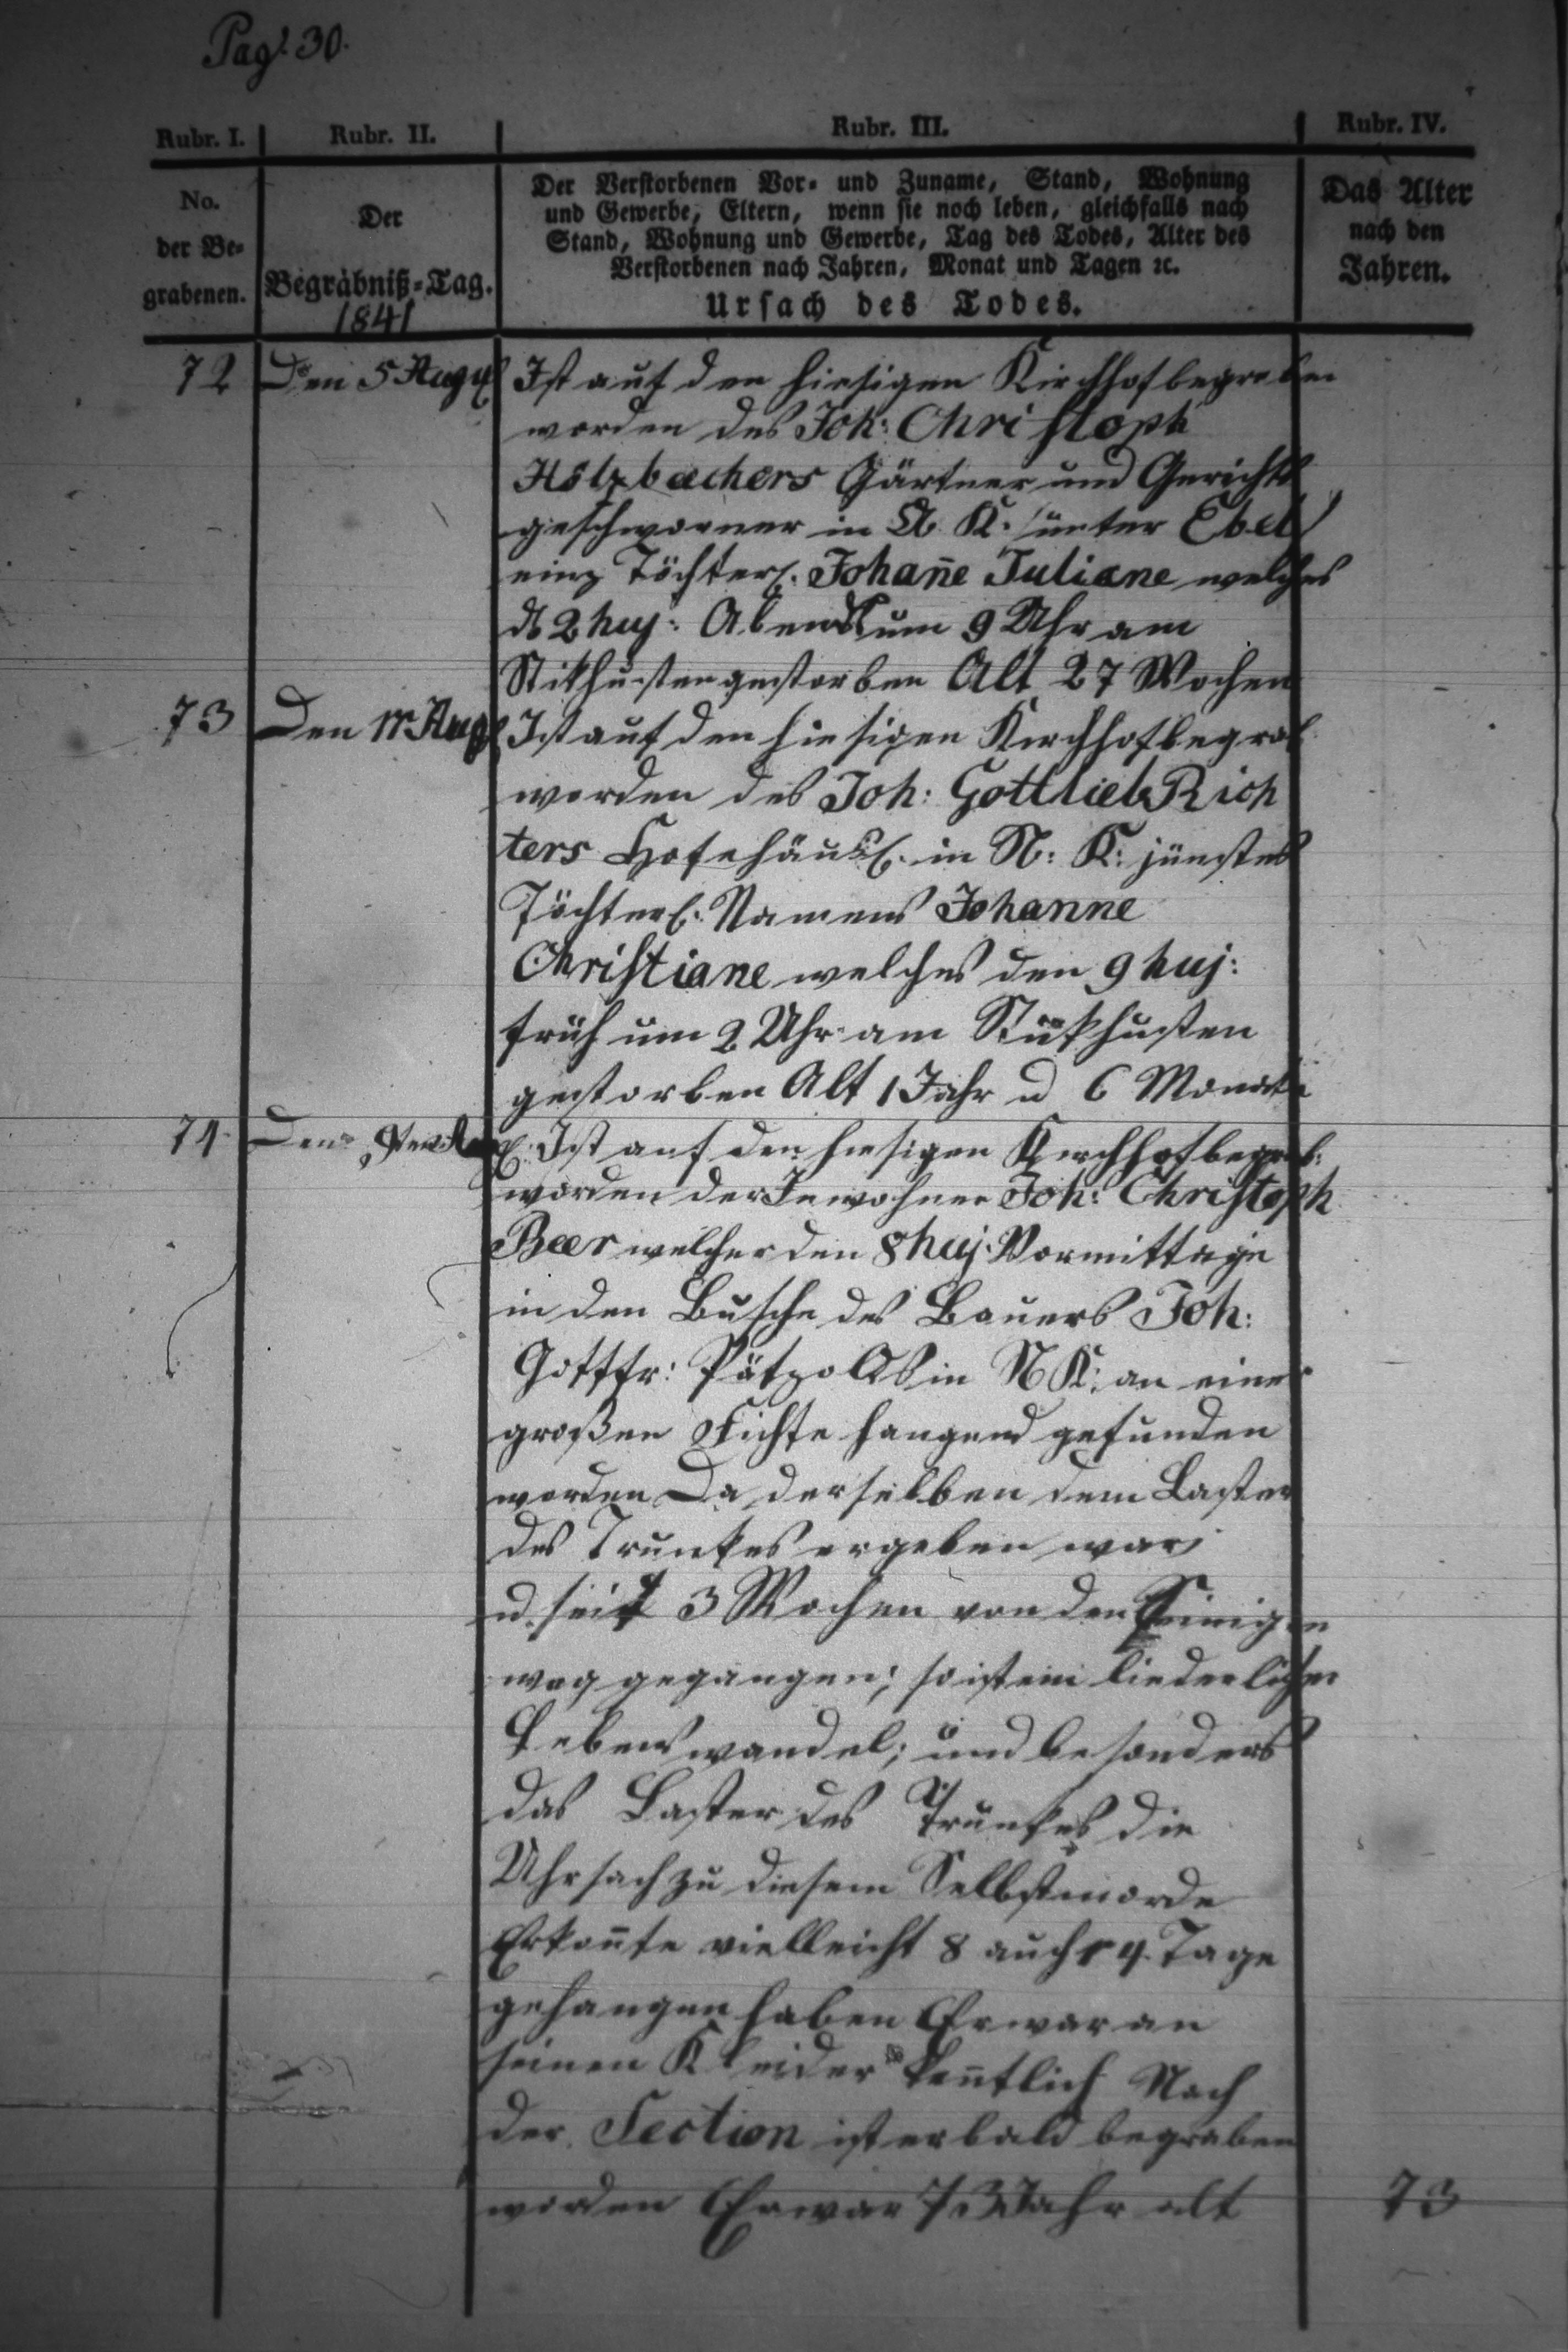 Pag. 30.
Rubr. I. Rubr. II. Rubr. III. Rubr. IV.
No.
der Be-
grabenen.
Der
Begräbniß-Tag.
1841
Der Verstorbenen Vor- und Zuname, Stand, Wohnung
und Gewerbe, Eltern, wenn sie noch leben, gleichfalls nach
Stand, Wohnung und Gewerbe, Tag des Todes, Alter des
Verstorbenen nach Jahren, Monat und Tagen ꝛc.
Ursach des Todes.
Das Alter
nach den
Jahren.
72 Den 5 Aug Ist auf den hiesigen Kirchhof begraben
worden des Joh: Christoph
Holzbechers Gärtner und Gerichts
geschworner in K: Ebel
einz Töchterl. Johañe Juliane welches
d 2 huj: Abends um 9 Uhr am
Stikhusten gestorben Alt 27 Wochen
73 Den Aug Ist auf den hiesigen Kirchhof begrab
worden des Joh: Gottlieb Rich
ters Hofehäusl. in N: K: jünstes
Töchterl. Namens Johanne
Christiane welches den 9 huj:
früh um 2 Uhr am Stükhusten
gestorben Alt 1 Jahr u 6 Monate
74 Den Ist auf den hiesigen Kirchhof begrab:
worden der Inwohner Joh: Christoph
Beer welcher den 8 huj: Vormittage
in den Busche des Bauers Joh:
Gottfr: Pätzolds in N K: an einer
großen Fichte hangend gefunden
worden Da derselben dem Laster
des Trunkes ergeben war
u. seit 3 Wochen von den Seinigen
weg gegangen; so ist ein liederlicher
Lebenswandel; und besonders
das Laster des Trunkes die
Uhrsach zu diesem Selbstmorde
Er koñte vielleicht 8 auch 14 Tage
gehangen haben Er war an
seinen Kleider keñtlich Nach
der Section ist er bald begraben
worden Er war 73 Jahr alt 73